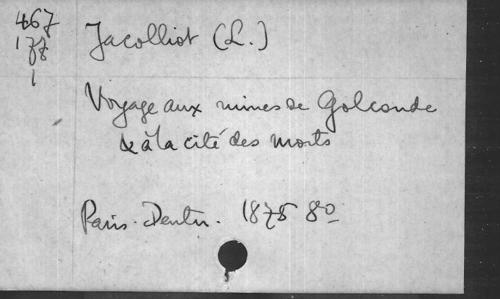 467
177
1
Jacolliot (L.)
Voyage aux mines de Golconde
& à la cité des morts
Paris. Dentu. 1875 8o